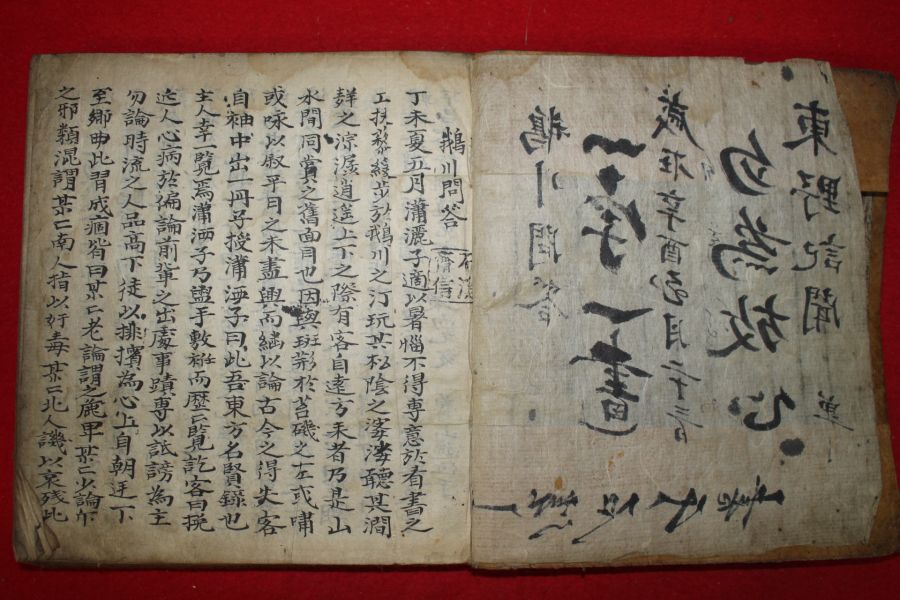 東野記聞 單
勿爲放心
歲在辛酉 月二十三
一字一書
鵝川問答
鵝川問答
丁未夏五月瀟灑子適以暑惱不得專意於看書之
工扶藜緩步於鵝川之汀玩其松陰之婆娑聽其澗
之淙潺逍遙上下之際有客自遠方來者乃是山
水間同賞之舊面目也因與班荊於苔磯之上或嘯
或咏以叙平日之未盡興而繼以論古今之得失客
自袖中出一冊子授瀟洒子曰此吾東方名賢錄也
主人幸一覽焉瀟洒子乃盥手敷袵而歷〻覽訖客曰挽
近人心病於偏論前輩之出處事蹟專以詆謗爲主
勿論時流之人品高下徒以排擯爲心上自朝廷下
至鄕曲此習成痼皆曰某〻老論謂之麁 某〻少論
之邪類混謂某〻南人指以行毒某〻北人譏以衰殘此